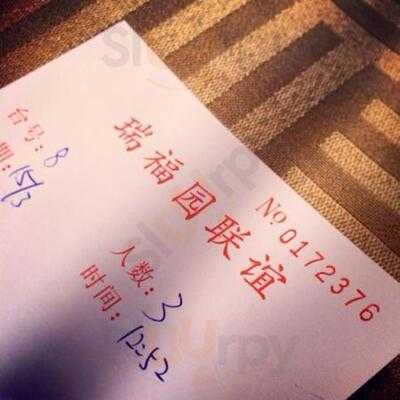 瑞福园联谊
№ 0172376
台号：8
人数：3
期：15/3
时间：12:52
Sluurpy